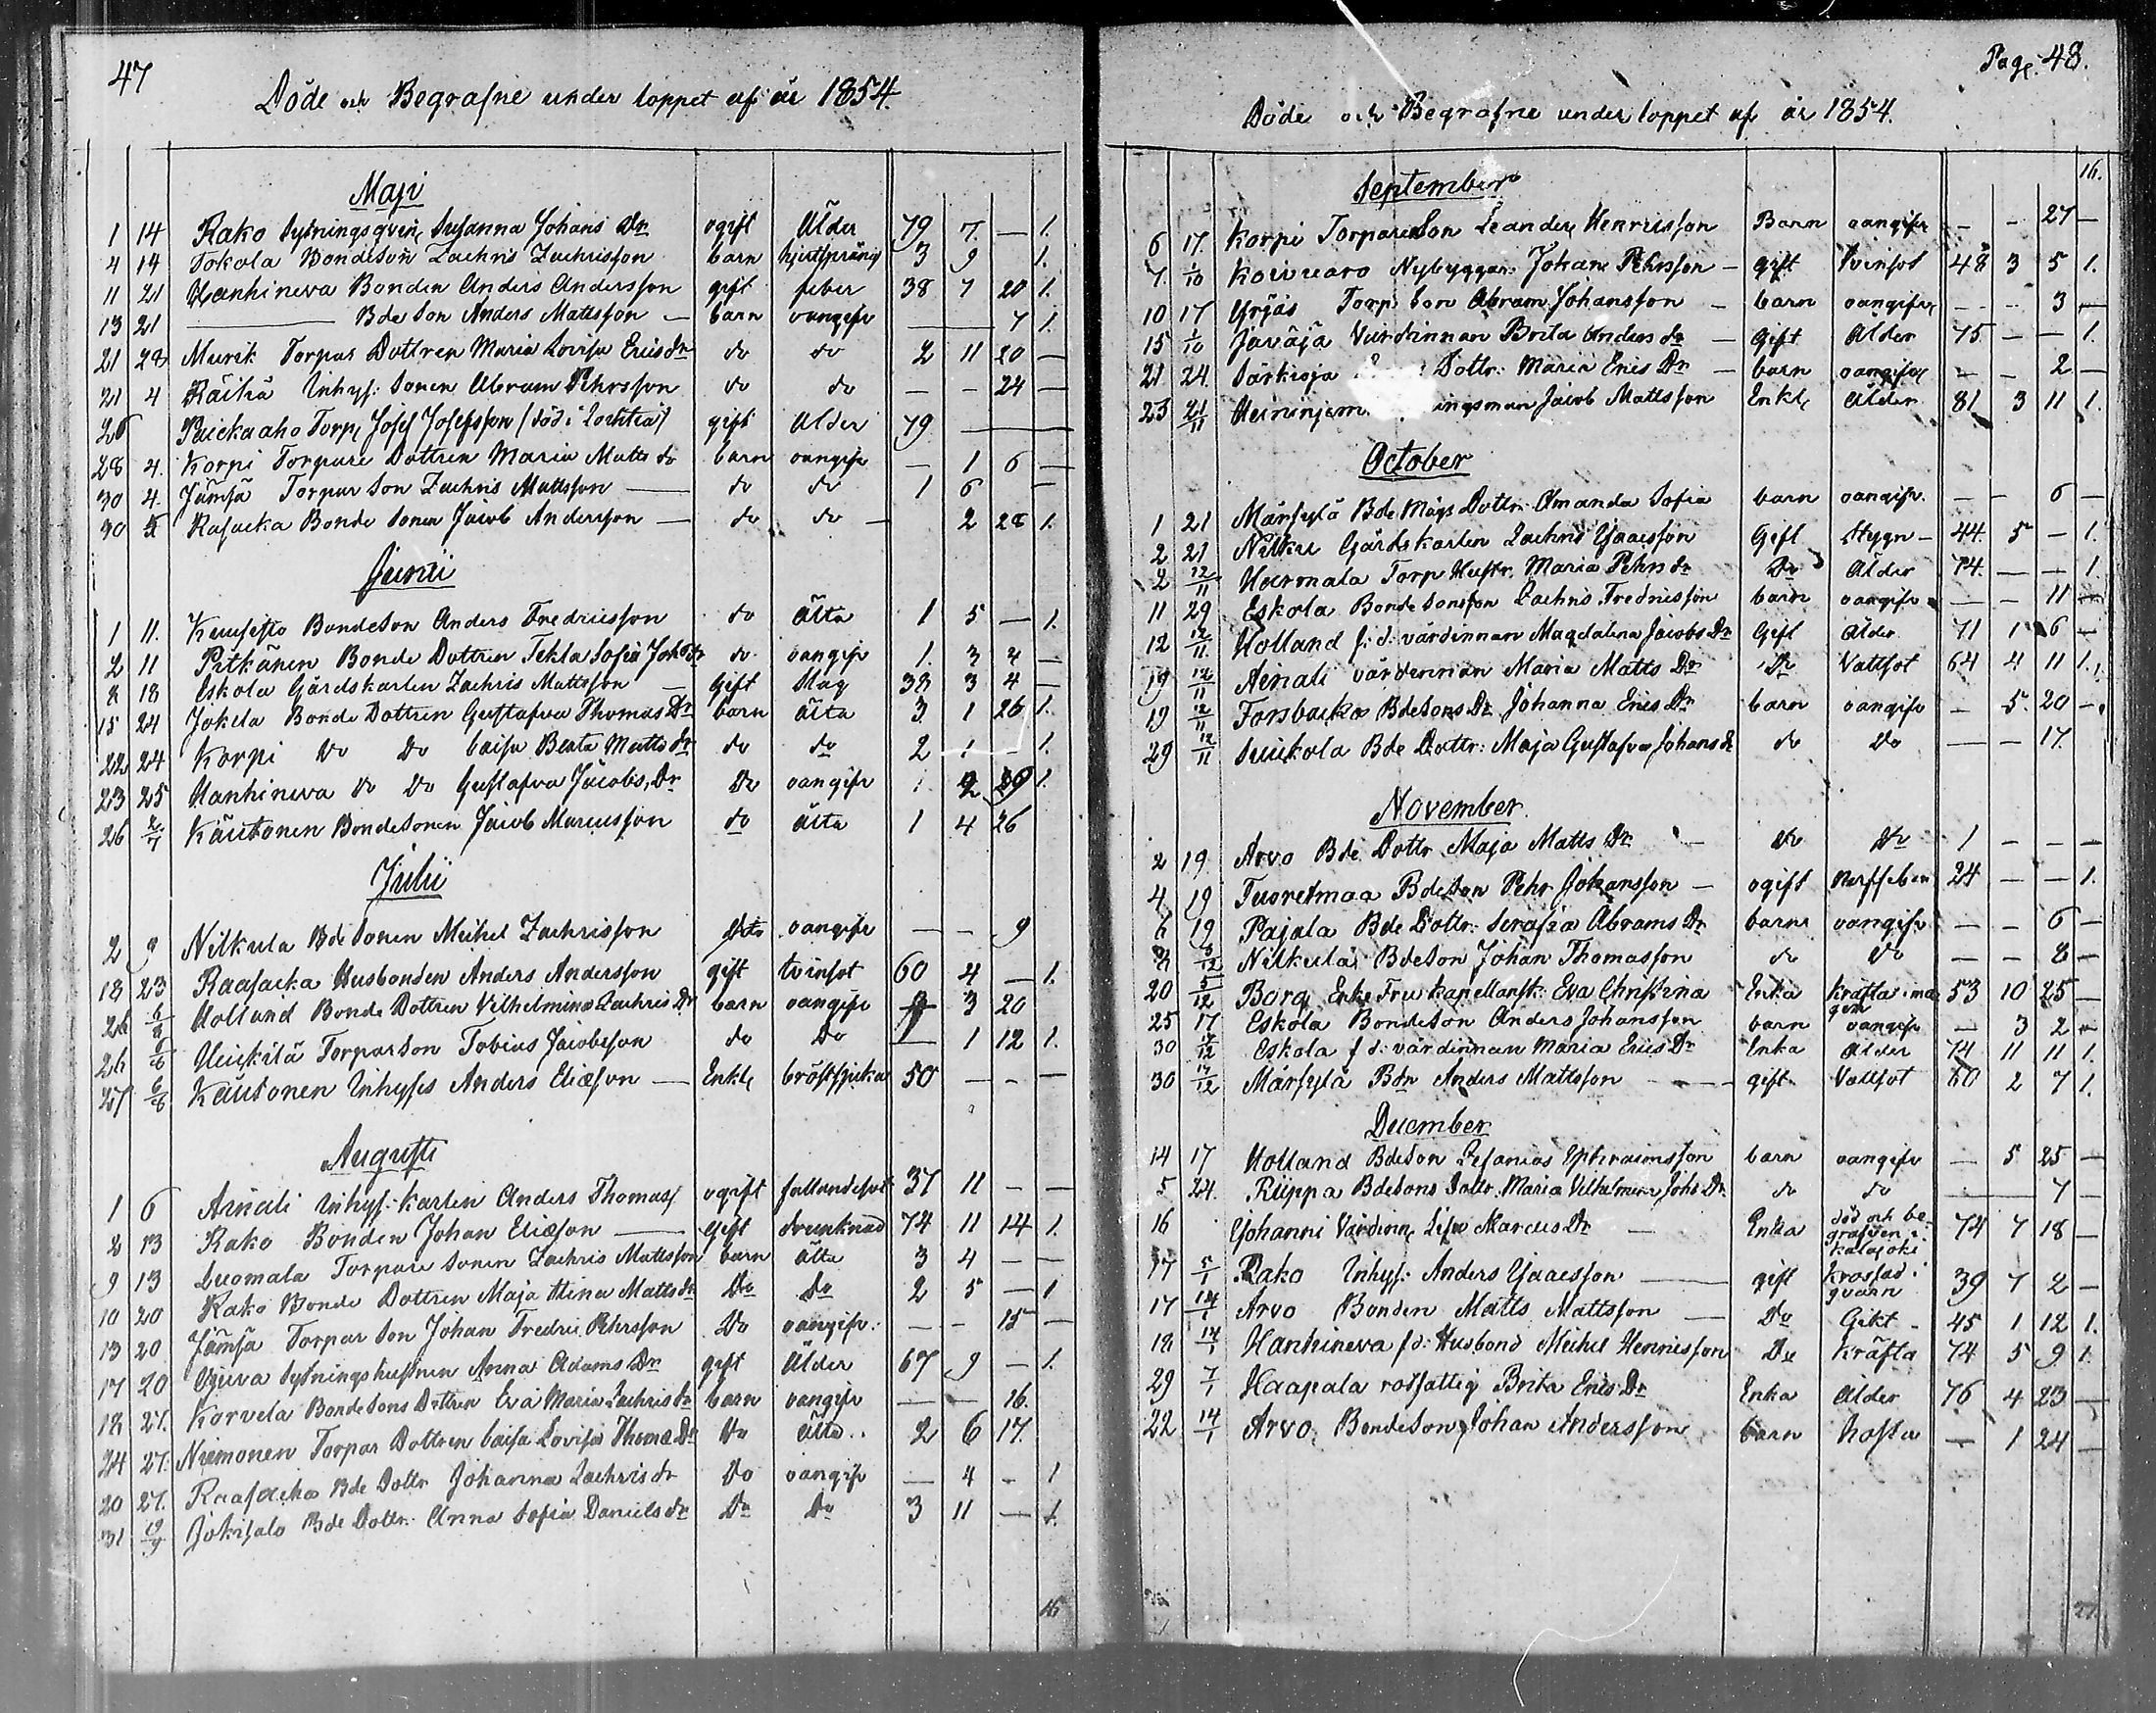 47
Döde och Begrafne under loppet af år 1854.
Maji
1 14 Rako Sytningsqvin, Susanna Johans Dr ogift Ålder 79 7. — 1.
4 14 Tokola Bondeson Zachris Zachrisson barn 3 9 1.
11 21 Hanhineva Bonden Anders Andersson gift feber 38 7 20 1.
13 21 — Bde Son Anders Mattsson — barn oangifv — 7 1.
21 28 Murik Torpar Dottren Maria Lovisa Ericsdr do do 2 11 20 —
21 4 Räihä Inhys: Sonen Abram Pehrsson do do — — 24 —
26 Torp, Josef Josefsson (död i Lochteå) gift Ålder 79 —
28 4. Korpi Torpare Dottren Maria Matts dr barn oangifv — 1 6 —
30 4. Jämsä Torpar Son Zachris Mattsson — do do 1 6 —
30 Rasacka Bonde Sonen Jacob Andersson — do do — 2 28 1.
Junii
1 11. Bondeson Anders Fredricsson do älta 1 5 — 1.
2 11 Pitkänen Bonde Dottren Tekla Sofia Johs dr do oangifv 1. 3 4 —
8 18 Eskola Gårdskarlen Zachris Mattsson — Gift Slag 38 3 4 —
15 24 Jokela Bonde Dottren Gustafva Thomas Dr barn älta 3 1 26 1.
22 24 Korpi Do Do Caisa Beata Matts dr do do 2 1 — 1.
23 25 Hanhineva do Do Gustafva Jacobs, Dr Do oangifv 1. 2 29 1.
26 2/7 Käutonen Bondesonen Jacob Marcusson do älta 1 4 26
Julii
2 9 Nilkula Bde Sonen Michel Zachrisson Do oangifv — — 9
18 23 Raasacka Husbonden Anders Andersson gift tvinsot 60 4 — 1.
26 6/8 Holland Bonde Dottren Vilhelmina Zachris Dr barn oangifv 3 20
26 6/8 Torparson Tobias Jacobsson do Do — 1 12 1.
27 6/8 Käutonen Inhyses Anders Eliæson — Enkl, bröstsjuka 50 — — —
Augusti
1 6 Ainali Inhys: Karlen Anders Thomass ogift fallandesot 37 11 — —
2 13 Rako Bonden Johan Eliæson — Gift drunknad 74 11 14 1.
9 13 Luomala Torpare Sonen Zachris Mattsson barn älta 3 4 — —
10 20 Rako Bonde Dottren Maja Stina Matts dr Do Do 2 5 — 1
13 20 Jämsä Torpar Son Johan Fredric Pehrsson Do oangifv. — — 15 —
17 20 Ojuva Sytningshustrun Anna Adams Dr gift Ålder 67 9 — 1.
18 27. Korvela Bondesons Dottren Eva Maria Zachris dr barn oangifv — — 16.
24 27. Niemonen Torpar Dottren Caisa Lovisa Thoma Dr Do Älta.. 2 6 17.
20 27. Raasacka Bde Dottr Johanna Zachris dr Do oangifv — 4 — 1
31 10/9 Jokisalo Bde Dottr: Anna Sofia Daniels dr Do Do 3 11 — 1.
16
Pag. 48.
Döde och Begrafne under loppet af år 1854.
16.
September
6 17. Korpi Torpareson Leander Henricsson Barn oangifv — — 27 —
7. 1/10 Koivucaro Nybyggar. Johan Pehrsson — gift Tvinsot 48 3 5 1.
10 17 Yrjäs Torp: Son Abram Johansson — barn oangifv — — 3 —
15 1/10 Javaja Värdinnan Brita Anders dr — Gift Ålder 75 — — 1.
21 24. Särkioja Dottr: Maria Erics Dr — barn oangifv — — 2 —
23 21/11 ingsman Jacob Mattsson Enkl, Ålder 81 3 11 1.
October
1 21 Märsylä Bde Mågs Dottr Amanda Sofia barn oangifv. — — 6 —
2 21 Nilku Gårdskarlen Zachris Ysacsson Gift Stygn — 44. 5 — 1.
2 12/11 Harmala Torp Hustr. Maria Pehrs dr Do Ålder 74. — — 1.
11 29 Eskola Bonde Sonson Zachris Fredricsson barn oangifv — — 11 —
12 12/11 Holland f: d: värdinnan Magdalena Jacobs Dr Gift Ålder 71 1 6 —
19 12/11 Ainali värdinnan Maria Matts Dr Do Vattsot 64 4 11 1.
19 12/11 Forsbacka Bdesons Dr Johanna Erics Dr barn oangifv — 5. 20 —
29 12/11 Bde Dottr: Maja Gustafva Johans dr do Do — — 17.
November.
2 19. Arvo Bde Dottr Maja Matts Dr — do Do 1 — — —
4 19 Tuoretmaa Bdeson Pehr Johansson — ogift nerffeber 24 — — 1.
6 19 Pajala Bde Dottr: Serafia Abrams Dr barn oangifv — — 6 —
3/12 Nilkula Bdeson Johan Thomasson do Do — — 8 —
20 5/12 Borg Enke Fru kapellansk: Eva Christina Enka kräfta i ma-gen 53 10 25 —
25 17 Eskola Bondeson Anders Johansson barn oangifv — 3 2 —
30 17/12 Eskola f d: värdinnan Maria Erics Dr Enka Ålder 74 11 11 1.
30 17/12 Märsylä Bdn Anders Mattsson — gift Vattsot 60 2 7 1.
December
14 17 Holland Bdeson Zefanias Ephraimsson barn oangifv — 5 25 —
5 24. Riippa Bdesons Dottr. Maria Vilhelmina Johs Dr. do do — 7 —
16 Ejohanni Värdinn, Lisa Marcus Dr — Enka död och be-grafven i Kalajoki 74 7 18 —
17 5/1 Rako Inhys: Anders Ysacsson — gift krossad i qvarn 39 7 2 —
17 14/1 Arvo Bonden Matts Mattsson — Do Gikt — 45 1 12 1.
18 14/1 Hanhineva f d: Husbond Michel Henricsson Do Kräfta 74 5 9 1.
29 7/1 Haapala rotfattig Brita Erics Dr Enka Ålder 76 4 23 —
22 14/1 Arvo Bondeson Johan Andersson barn hosta — 1 24 —
27.